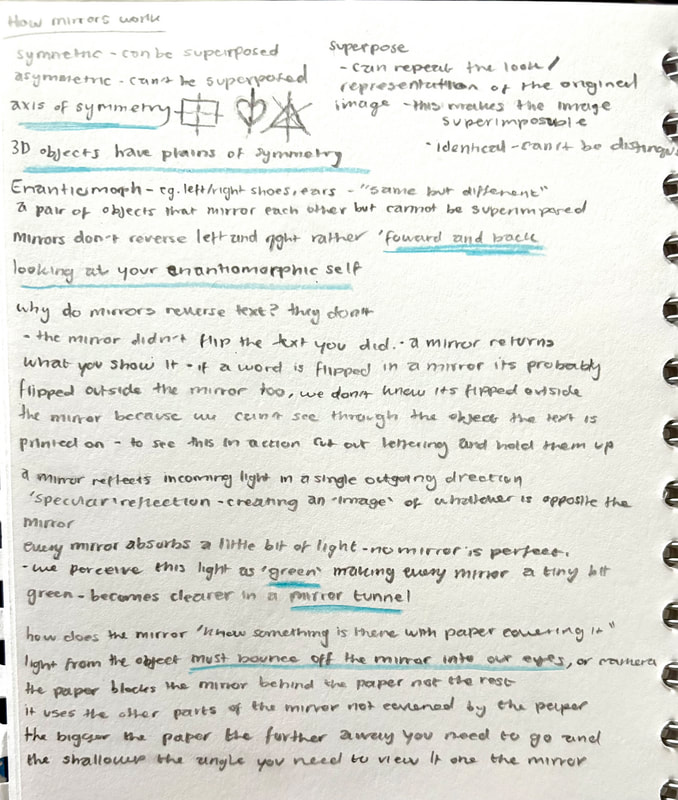 How mirrors work
symmetric - can be superposed
asymmetric - can't be superposed
axis of symmetry
superpose
- can repeat the look /
representation of the original
image - this makes the image
superimposible
· identical - can't be distingus
3D objects have plains of symmetry
Enantiomorph - eg. left/right shoes, ears - "same but different"
a pair of objects that mirror each other but cannot be superimposed
mirrors don't reverse left and right rather 'foward and back
looking at your enantiomorphic self
why do mirrors reverse text? they don't
- the mirror didn't flip the text you did. - a mirror returns
what you show it - if a word is flipped in a mirror its probably
flipped outside the mirror too, we don't know its flipped outside
the mirror because we can't see through the object the text is
printed on - to see this in action cut out lettering and hold them up
a mirror reflects incoming light in a single outgoing direction
'specular' reflection - creating an 'image' of whatever is opposite the
mirror
every mirror absorbs a little bit of light - no mirror is perfect.
- we perceive this light as 'green' making every mirror a tiny bit
green - becomes clearer in a mirror tunnel
how does the mirror "know something is there with paper covering it"
light from the object must bounce off the mirror into our eyes, or camera
the paper blocks the mirror behind the paper not the rest
it uses the other parts of the mirror not covered by the paper
the bigger the paper the further away you need to go and
the shallower the angle you need to view it one the mirror